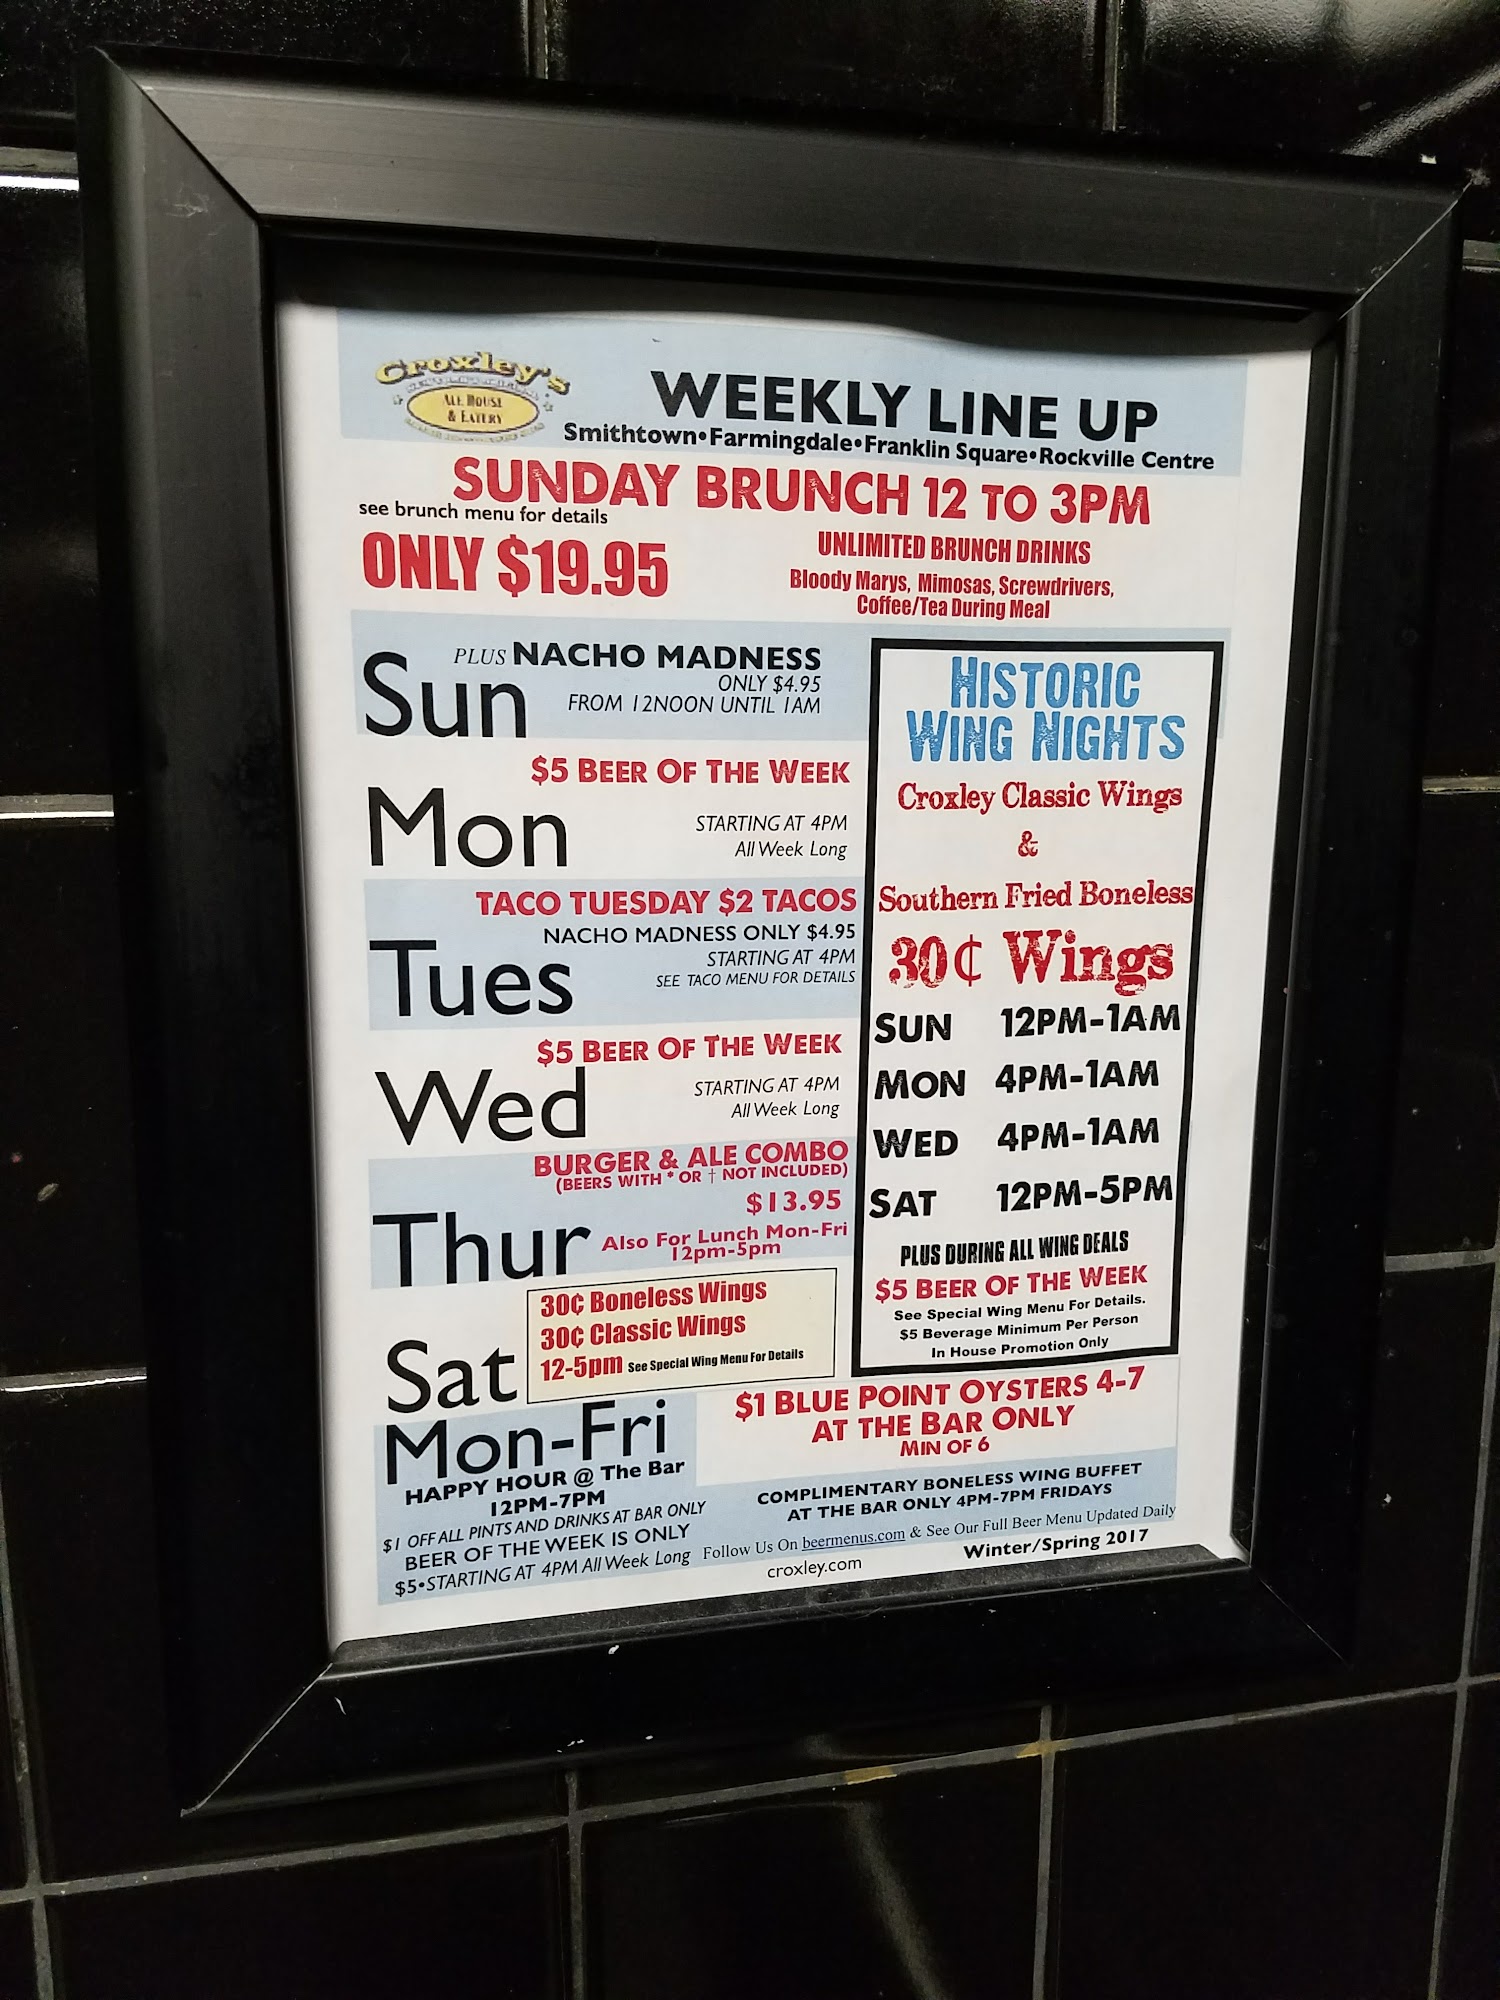 Croxley's
ALE HOUSE
& EATERY
WEEKLY LINE UP
Smithtown•Farmingdale•Franklin Square•Rockville Centre
SUNDAY BRUNCH 12 TO 3PM
see brunch menu for details
ONLY $19.95
UNLIMITED BRUNCH DRINKS
Bloody Marys, Mimosas, Screwdrivers,
Coffee/Tea During Meal
Sun
PLUS NACHO MADNESS
ONLY $4.95
FROM 12NOON UNTIL 1AM
$5 BEER OF THE WEEK
Mon
STARTING AT 4PM
All Week Long
TACO TUESDAY $2 TACOS
NACHO MADNESS ONLY $4.95
Tues
STARTING AT 4PM
SEE TACO MENU FOR DETAILS
$5 BEER OF THE WEEK
Wed
STARTING AT 4PM
All Week Long
BURGER & ALE COMBO
(BEERS WITH * OR † NOT INCLUDED)
$13.95
Thur
Also For Lunch Mon-Fri
12pm-5pm
Sat
30¢ Boneless Wings
30¢ Classic Wings
12-5pm See Special Wing Menu For Details
HISTORIC
WING NIGHTS
Croxley Classic Wings
&
Southern Fried Boneless
30¢ Wings
SUN 12PM-1AM
MON 4PM-1AM
WED 4PM-1AM
SAT 12PM-5PM
PLUS DURING ALL WING DEALS
$5 BEER OF THE WEEK
See Special Wing Menu For Details.
$5 Beverage Minimum Per Person
In House Promotion Only
Mon-Fri
HAPPY HOUR @ The Bar
12PM-7PM
$1 OFF ALL PINTS AND DRINKS AT BAR ONLY
BEER OF THE WEEK IS ONLY
$5•STARTING AT 4PM All Week Long
$1 BLUE POINT OYSTERS 4-7
AT THE BAR ONLY
MIN OF 6
COMPLIMENTARY BONELESS WING BUFFET
AT THE BAR ONLY 4PM-7PM FRIDAYS
Follow Us On beermenus.com & See Our Full Beer Menu Updated Daily
croxley.com
Winter/Spring 2017